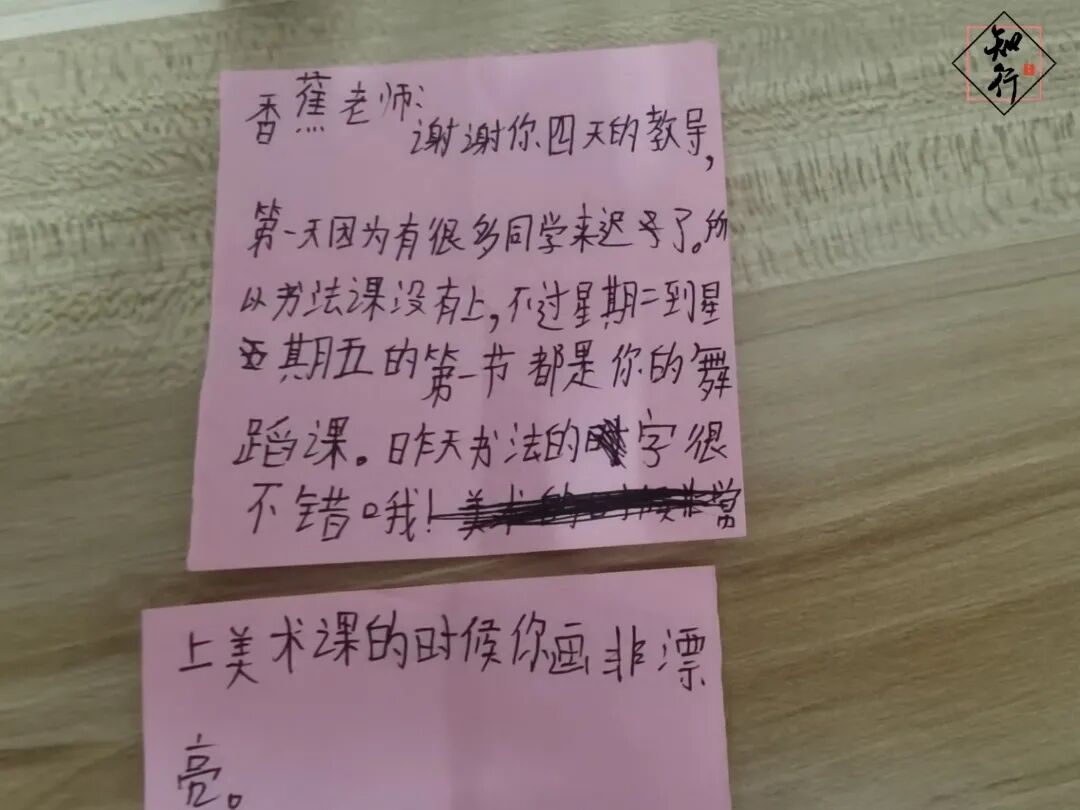 知行
香蕉老师:
谢谢你四天的教导,
第一天因为有很多同学来迟了。所
以书法课没有上,不过星期二到星
期五的第一节都是你的舞
蹈课。昨天书法的字很
不错哦!
上美术课的时候你画非漂
亮。